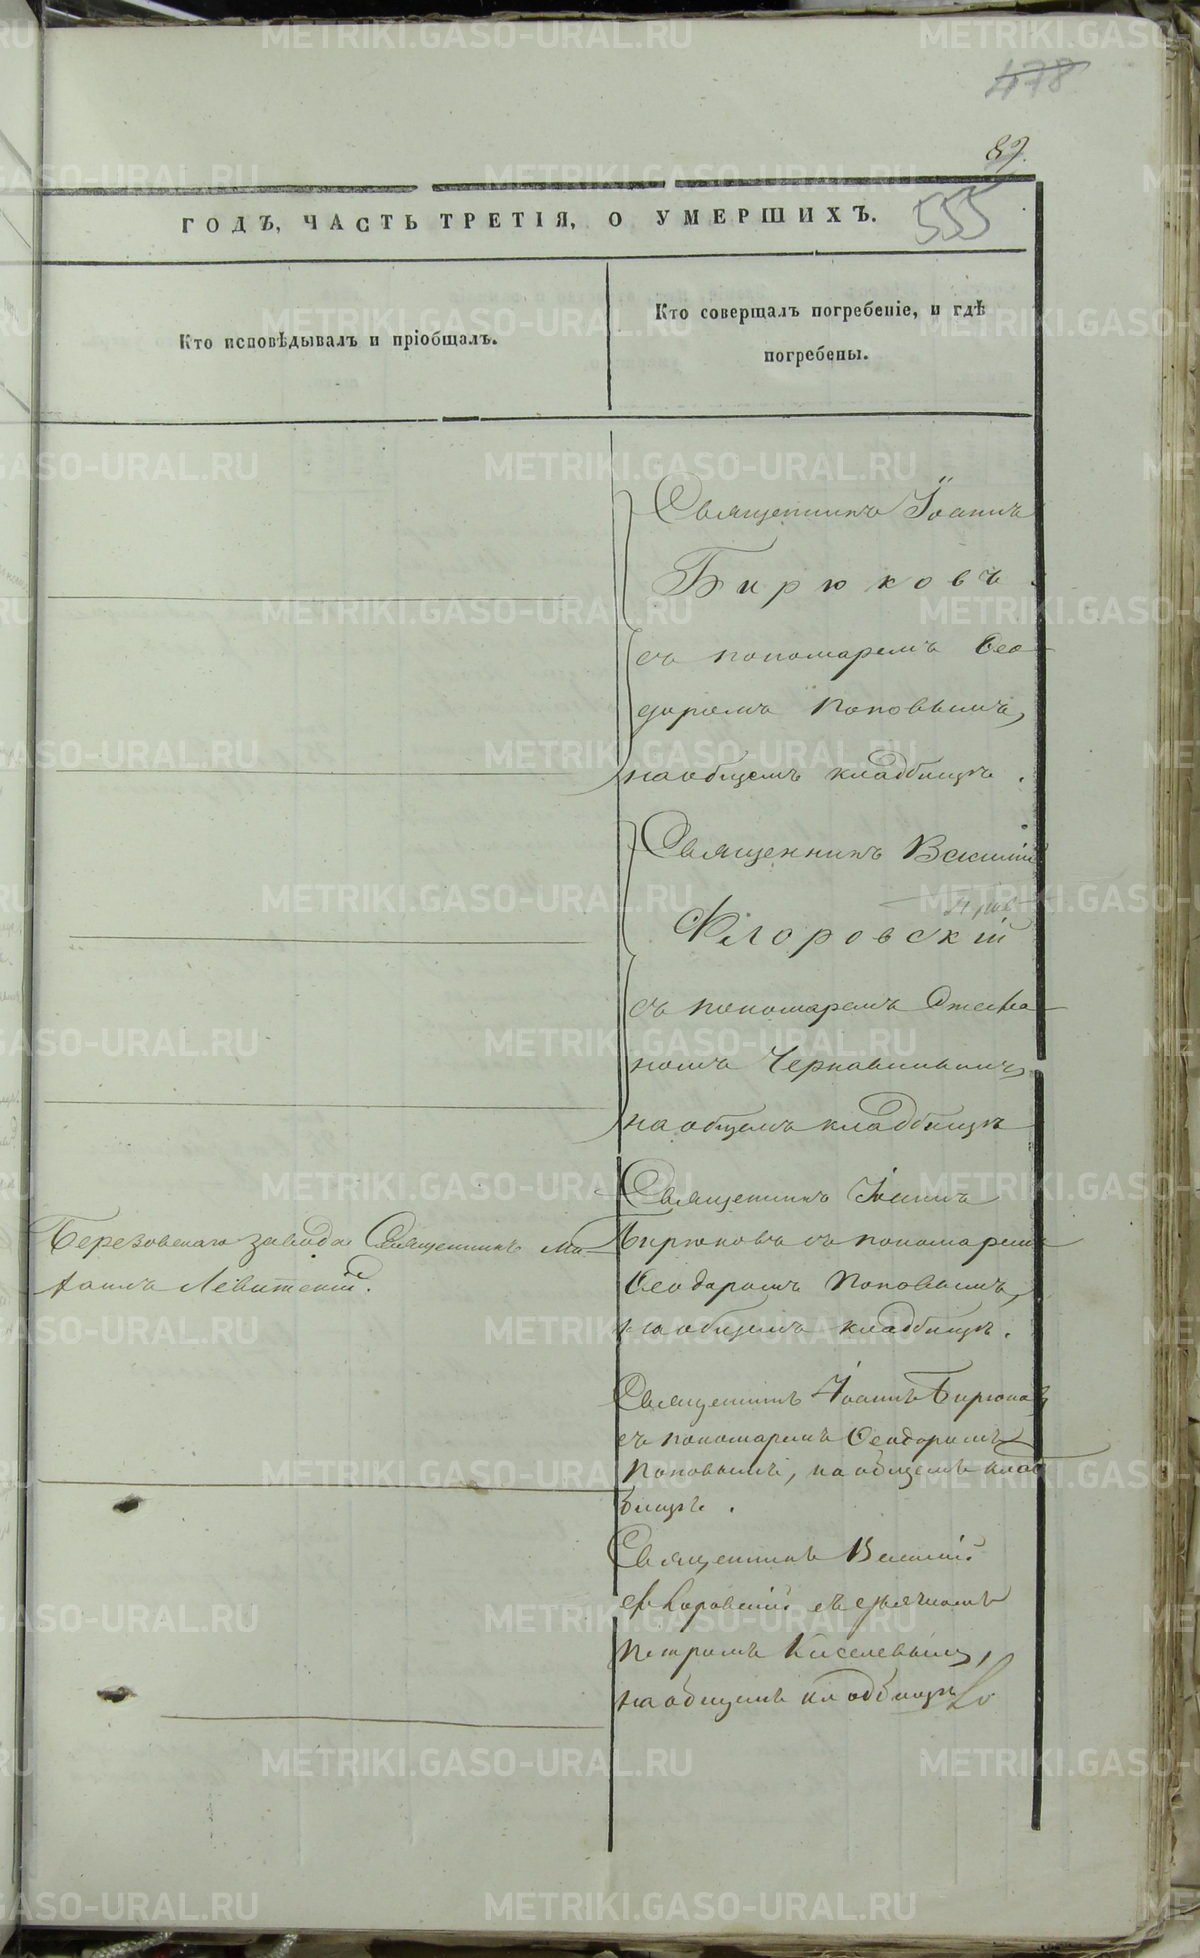 478
89.
ГОДЪ, ЧАСТЬ ТРЕТІЯ, О УМЕРШИХЪ.
555
Кто исповѣдывалъ и пріобщалъ.
Кто совершалъ погребеніе, и гдѣ
погребены.
Священникъ Іоаннъ
Бирюковъ
съ пономаремъ Ѳео-
доромъ Поповымъ,
на общемъ кладбищѣ.
Священникъ Василій
Флоровскій
съ пономаремъ Стефа-
номъ Чернавинымъ,
на общемъ кладбищѣ
Березовскаго завода Священникъ Ми-
хаилъ Левитскій.
Священникъ Іоаннъ
Бирюковъ съ пономаремъ
Ѳеодоромъ Поповымъ,
на общемъ кладбищѣ.
Священникъ Іоаннъ Бирюковъ
съ пономаремъ Ѳеодоромъ
Поповымъ, на общемъ клад-
бищѣ.
Священникъ Василій
Флоровскій съ дьячкомъ
Петромъ Киселевымъ,
на общемъ кладбищѣ
METRIKI.GASO-URAL.RU